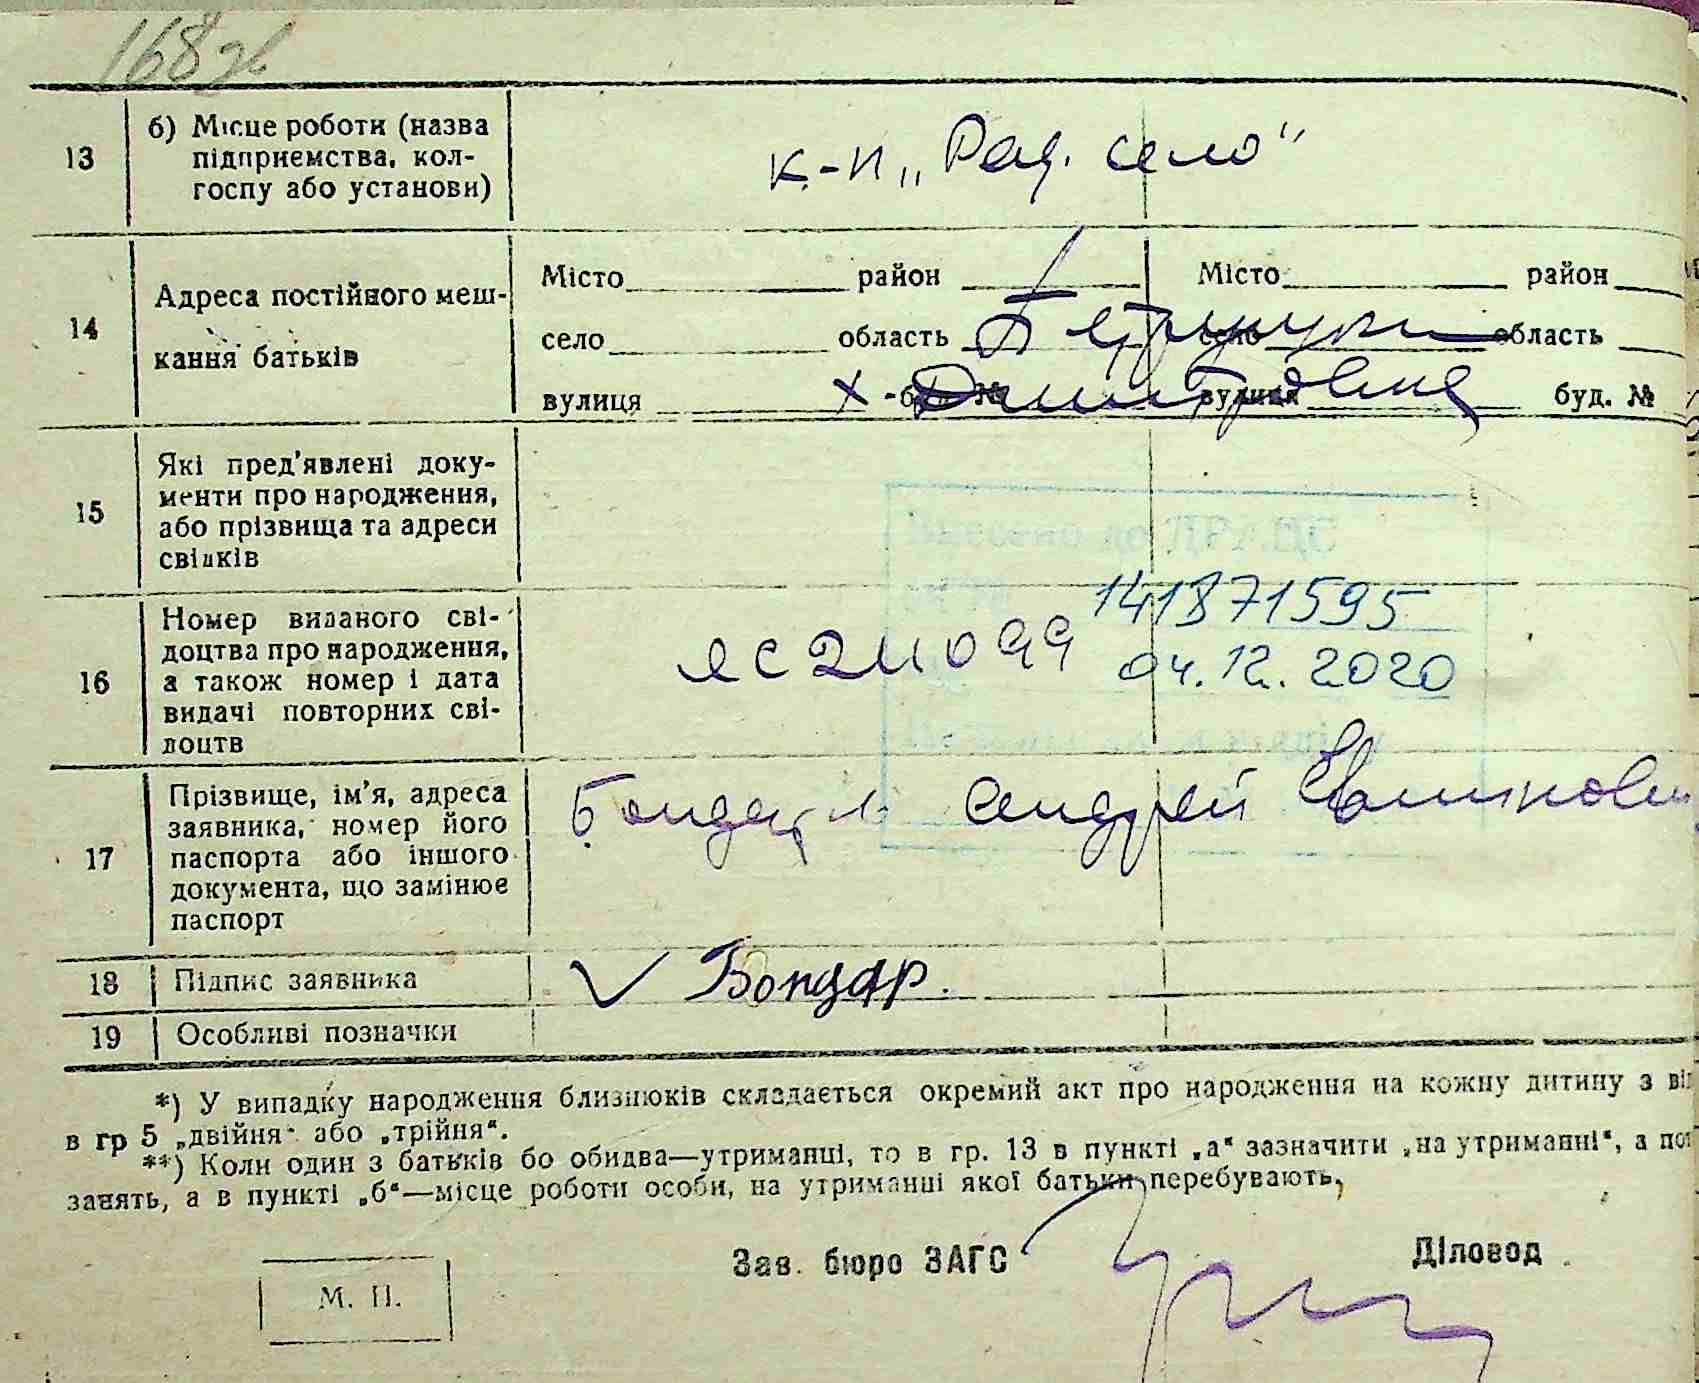 168 зв.
13
б) Місце роботи (назва
підприємства, кол-
госпу або установи)
к-п „Рад. село“
14
Адреса постійного меш-
кання батьків
Місто район Місто район
село область село область
вулиця буд. № вулиця буд. №
х. Дмитровка
15
Які пред'явлені доку-
менти про народження,
або прізвища та адреси
свідків
Внесено до ДРАЦС
16
Номер виданого сві-
доцтва про народження,
а також номер і дата
видачі повторних сві-
доцтв
ЯС 211099
141871595
04.12.2020
17
Прізвище, ім'я, адреса
заявника, номер його
паспорта або іншого
документа, що замінює
паспорт
Бондарь Андрей
18
Підпис заявника
V Бондар.
19
Особливі позначки
*) У випадку народження близнюків складається окремий акт про народження на кожну дитину з ві
в гр 5 „двійня“ або „трійня“.
**) Коли один з батьків бо обидва—утриманці, то в гр. 13 в пункті „а“ зазначити „на утриманні“, а по
занять, а в пункті „б“—місце роботи особи, на утриманні якої батьки перебувають,
Зав. бюро ЗАГС
Діловод
М. П.